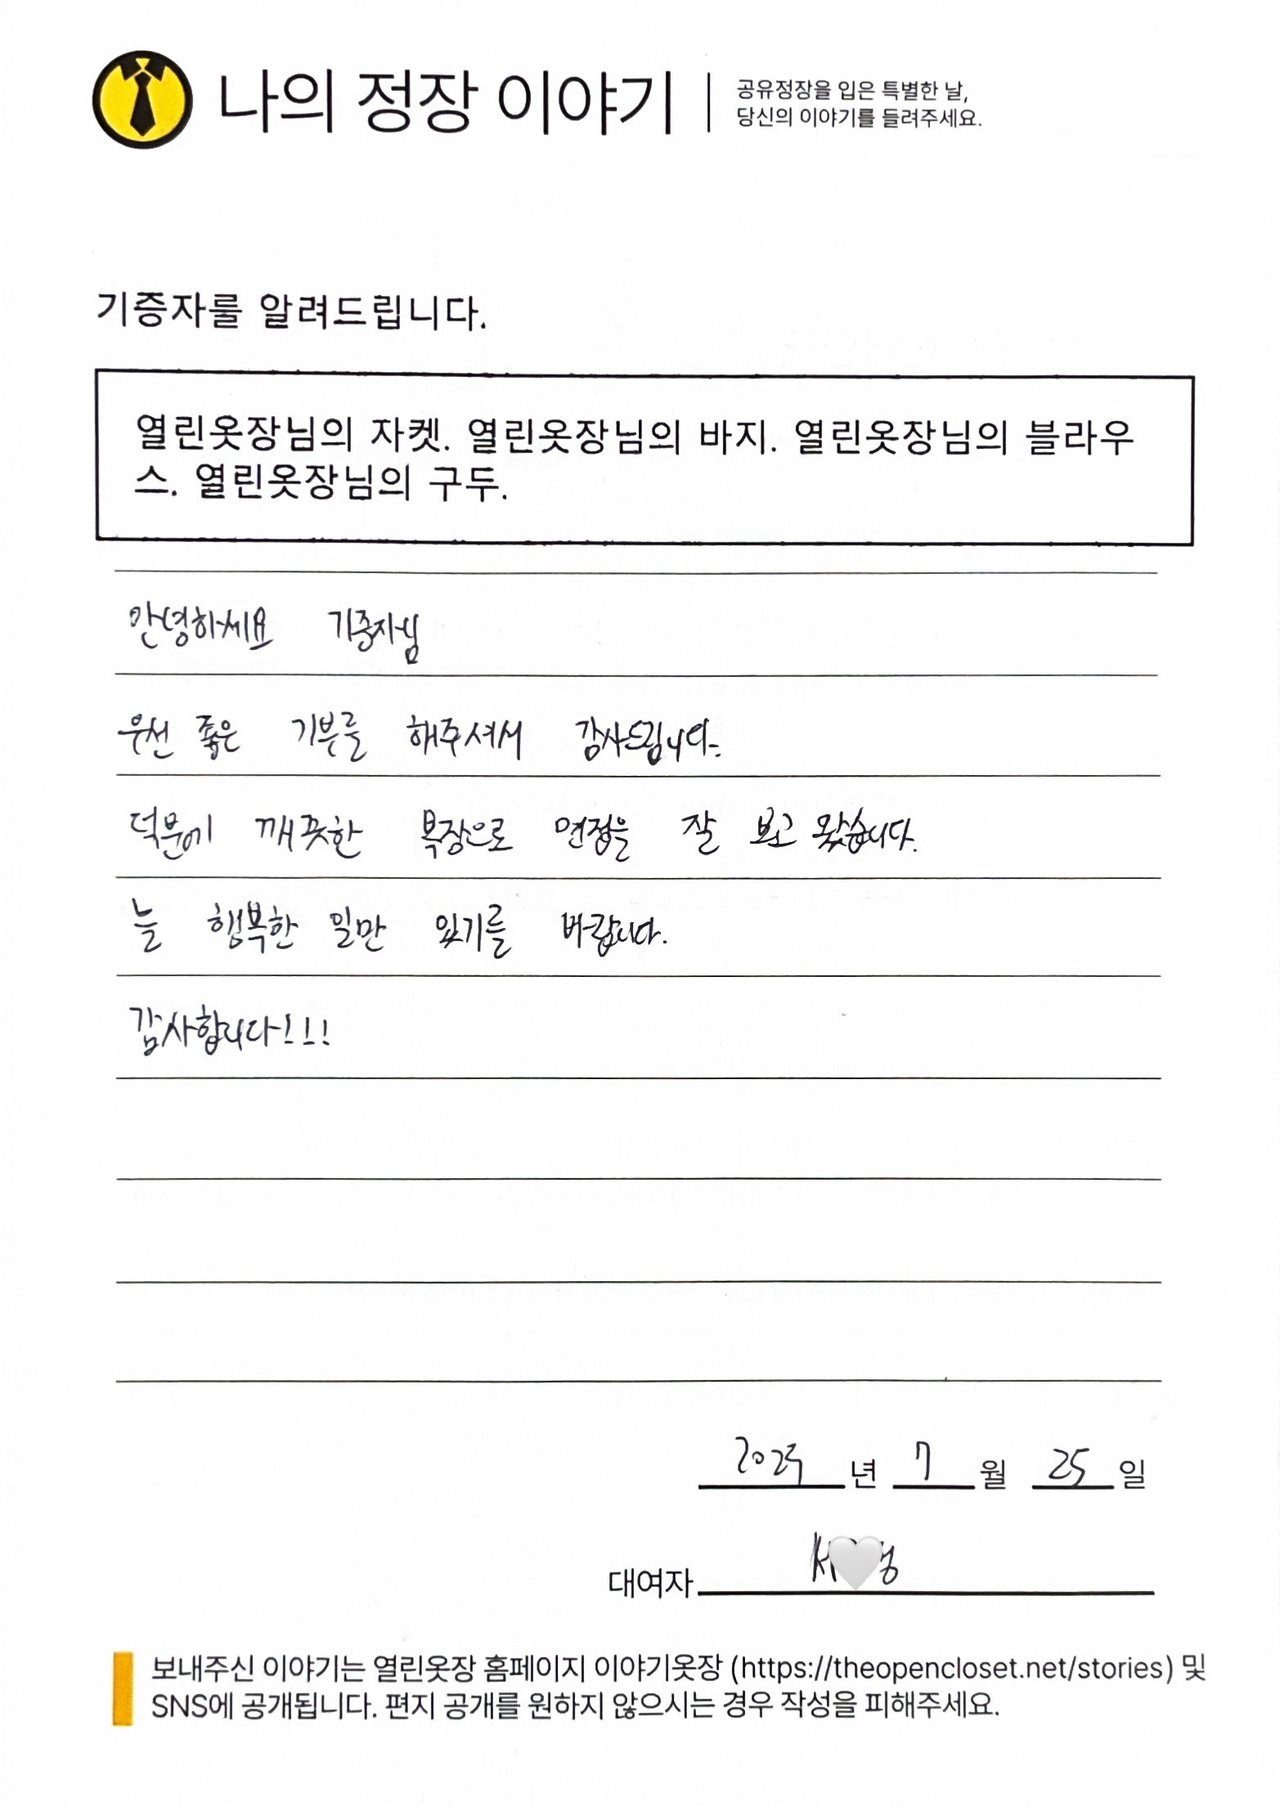 나의 정장 이야기
공유정장을 입은 특별한 날,
당신의 이야기를 들려주세요.
기증자를 알려드립니다.
열린옷장님의 자켓. 열린옷장님의 바지. 열린옷장님의 블라우
스. 열린옷장님의 구두.
안녕하세요 기증자님
우선 좋은 기부를 해주셔서 감사드립니다.
덕분에 깨끗한 복장으로 면접을 잘 보고 왔습니다.
늘 행복한 일만 있기를 바랍니다.
감사합니다!!!
2025 년 7 월 25 일
대여자
보내주신 이야기는 열린옷장 홈페이지 이야기옷장 (https://theopencloset.net/stories) 및
SNS에 공개됩니다. 편지 공개를 원하지 않으시는 경우 작성을 피해주세요.